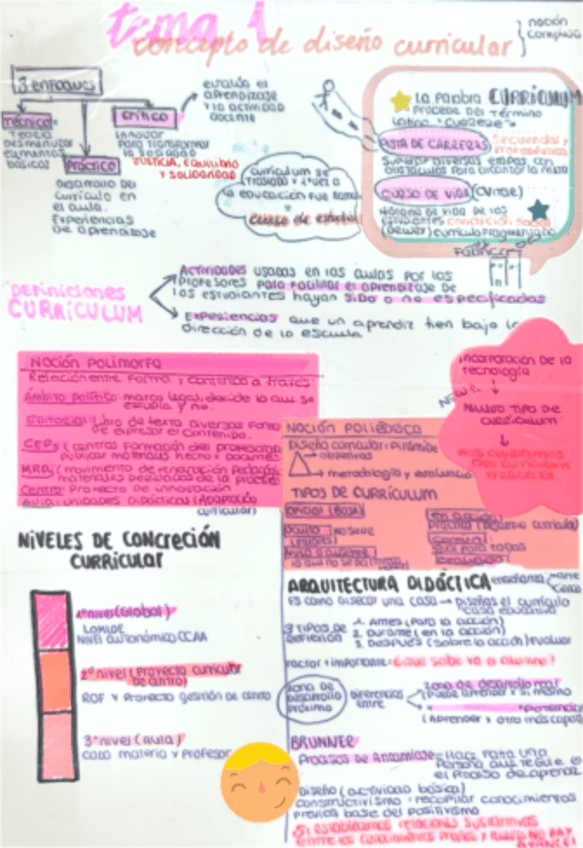 tema 1
concepto de diseño curricular
noción
compleja
3 enfoques
Técnico =
Teoría
Desmenuzar
elementos
básicos
Práctico
Desarrollo del
currículo en
el aula.
Experiencias
de aprendizaje
crítico
Innovar
para transformar
la sociedad
JUSTICIA, EQUILIBRIO
Y SOLIDARIDAD
evalúa el
aprendizaje
y la actividad
docente
curriculum se
traslada
la educación
CURSO DE
La palabra CURRÍCULUM
procede del término
latino "currere"
PISTA DE CARRERAS Secuencial y
Superar diversas etapas con
obstáculos para alcanzar la meta
CURSO DE VIDA (VITAE)
Historia de vida de los
estudiantes CONCEPCIÓN
(Dewey) currículo fragmentado
Definiciones
CURRÍCULUM
Actividades usadas en las aulas por los
profesores para facilitar el aprendizaje de
los estudiantes hayan sido o no especificadas
Experiencias que un aprendiz tien bajo la
dirección de la escuela
Noción Polimorfa
Relación entre forma y contenido a través:
Ámbito político: marco legal, decide lo que se
estudia y no.
Editorial: libro de texto diversas
de expresar el contenido.
CEPs (centros formación del profesorado
publicar materiales hecho x docentes
MRP: (movimiento de renovación Pedagógica
materiales
Centro: Proyecto de innovación
Aula: unidades didácticas (Adaptación
curricular)
Incorporación de la
tecnología
Nuevo tipo de
currículum
Noción Poliédrica
Diseño curricular: Pirámide
objetivos
metodología y evaluación
TIPOS DE CURRÍCULUM
Oficial (BOJA)
Oculto no se ve
Nulo o ausente
lo que no se da
en acción:
práctico (desarrollo curricular)
para todos
Niveles de concreción
curricular
1º nivel (Global)
LOMLOE
Nivel autonómico CCAA
2º nivel (Proyecto curricular
de centro)
ROF y Proyecto gestión de centro
3º nivel (aula)
cada materia y profesor
ARQUITECTURA DIDÁCTICA
enseñanza
Es como diseñar una casa → Diseñas el currículo
3 tipos de
1. Antes (Para la acción)
2. Durante (en la acción)
3. Después (sobre la acción) Evaluar
Factor + importante: ¿que sabe ya el alumno?
Zona de
desarrollo
próximo
Diferencias
entre
Zona de desarrollo real
(Puede aprender x sí mismo
(Aprender x otro más capaz
BRUNNER
Proceso de Andamiaje = Hace falta una
persona que te guíe en
el proceso de aprend.
Diseño (actividad básica)
Constructivismo = recopilar conocimientos
previos base del positivismo
Si establecemos relaciones sustantivas
entre los conocimientos previos y nuevos NO HAY
AVANCE!